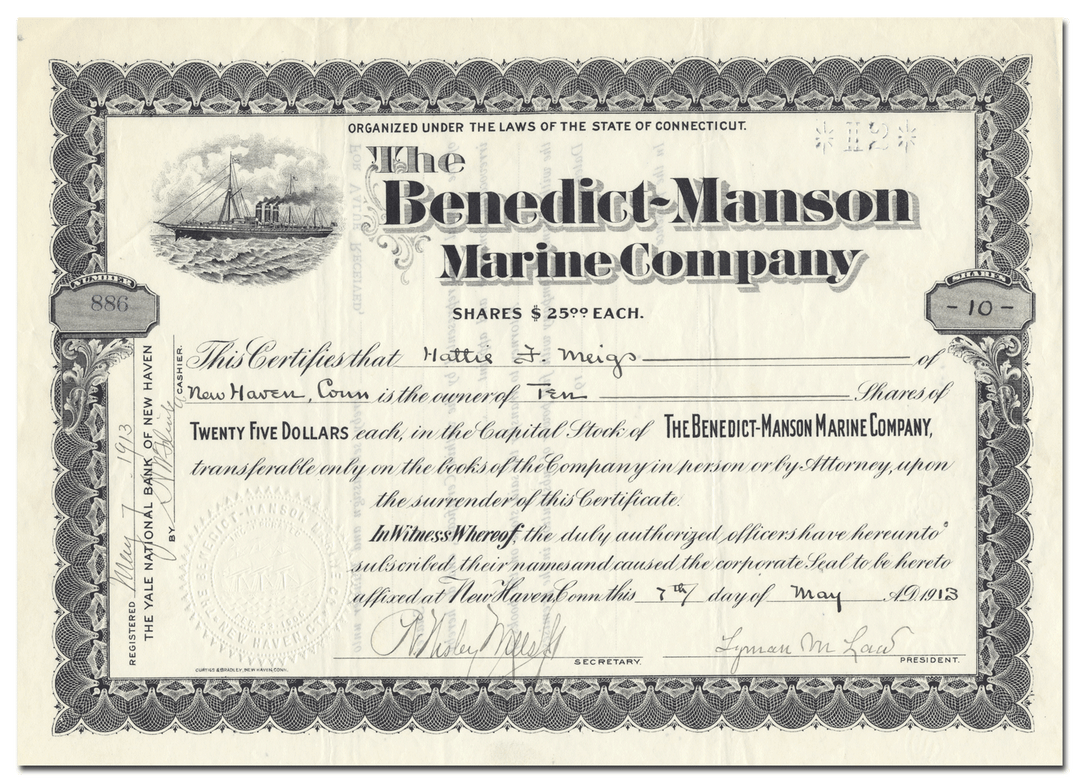 ORGANIZED UNDER THE LAWS OF THE STATE OF CONNECTICUT.
The
Benedict-Manson
Marine Company
SHARES $25.00 EACH.
NUMBER
886
SHARES
-10-
This Certifies that Hattie F. Meigs of
New Haven, Conn is the owner of Ten Shares of
TWENTY FIVE DOLLARS each, in the Capital Stock of THE BENEDICT-MANSON MARINE COMPANY,
transferable only on the books of the Company in person or by Attorney, upon
the surrender of this Certificate.
In Witness Whereof, the duly authorized officers have hereunto
subscribed their names and caused the corporate Seal to be hereto
affixed at New Haven Conn. this 7th day of May A.D. 1913
SECRETARY.
Lyman M Law PRESIDENT.
REGISTERED May 7 1913
THE YALE NATIONAL BANK OF NEW HAVEN
BY CASHIER.
CURTISS & BRADLEY, NEW HAVEN, CONN.